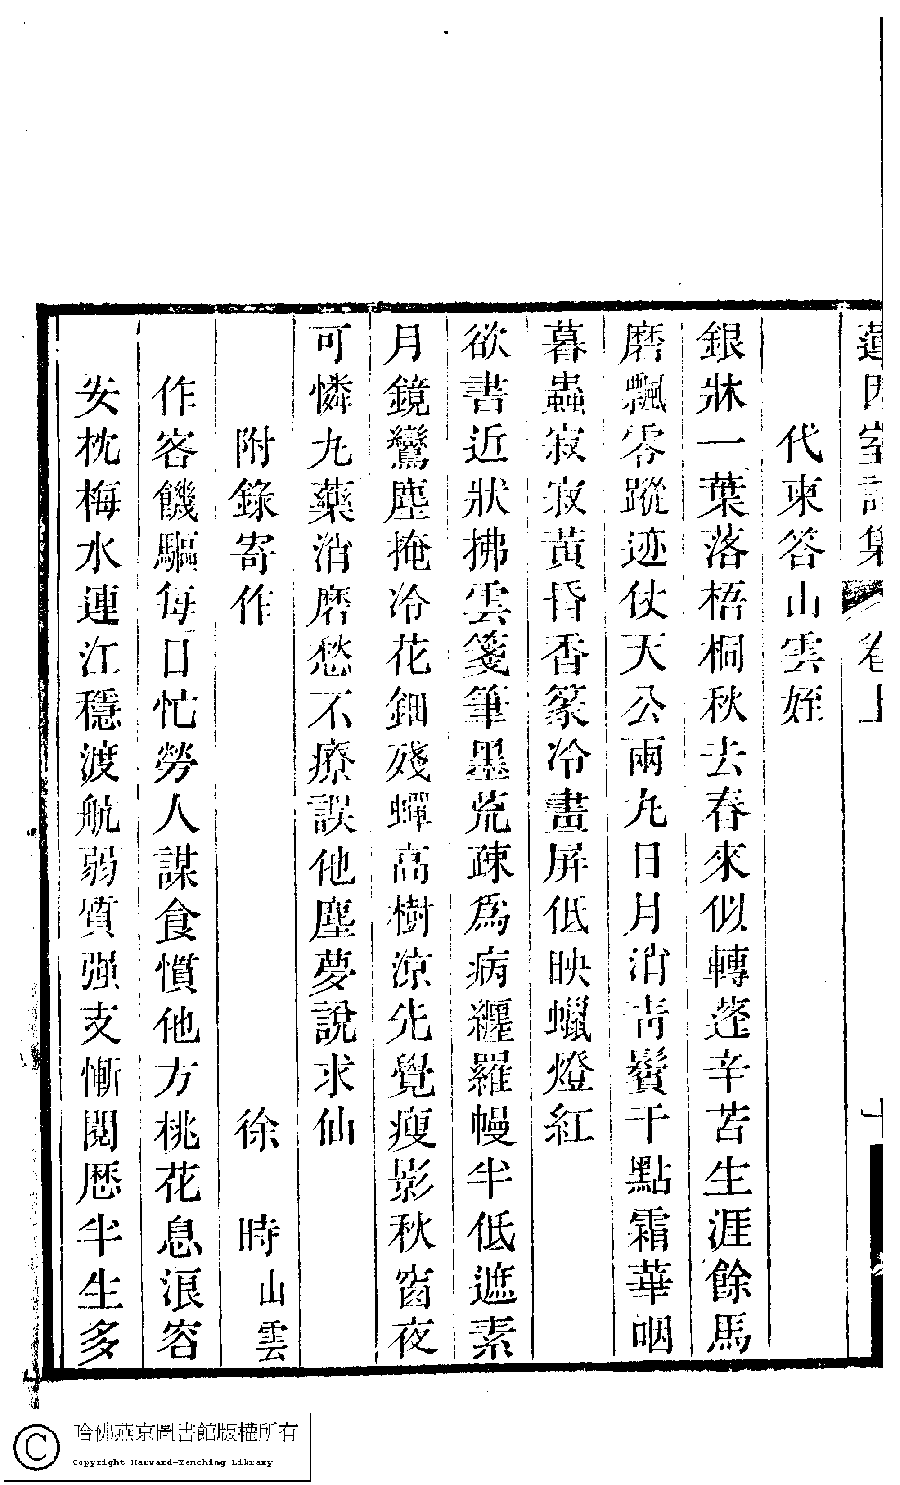 蓮因室詩集 卷上
代柬答山雲姪
銀牀一葉落梧桐秋去春來似轉蓬辛苦生涯餘馬
磨飄零蹤迹仗天公兩丸日月消青鬢千點霜華咽
暮蟲寂寂黃昏香篆冷畫屏低映蠟燈紅
欲書近狀拂雲箋筆墨荒疎爲病纏羅幔半低遮素
月鏡鸞塵掩冷花鈿殘蟬高樹涼先覺瘦影秋窗夜
可憐九藥消磨愁不療誤他塵夢說求仙
附錄寄作 徐 時山雲
作客饑驅每日忙勞人謀食慣他方桃花息浪容
安枕梅水連江穩渡航弱質强支慚閱歷半生多
哈佛燕京圖書館版權所有
Copyright Harvard-Yenching Library